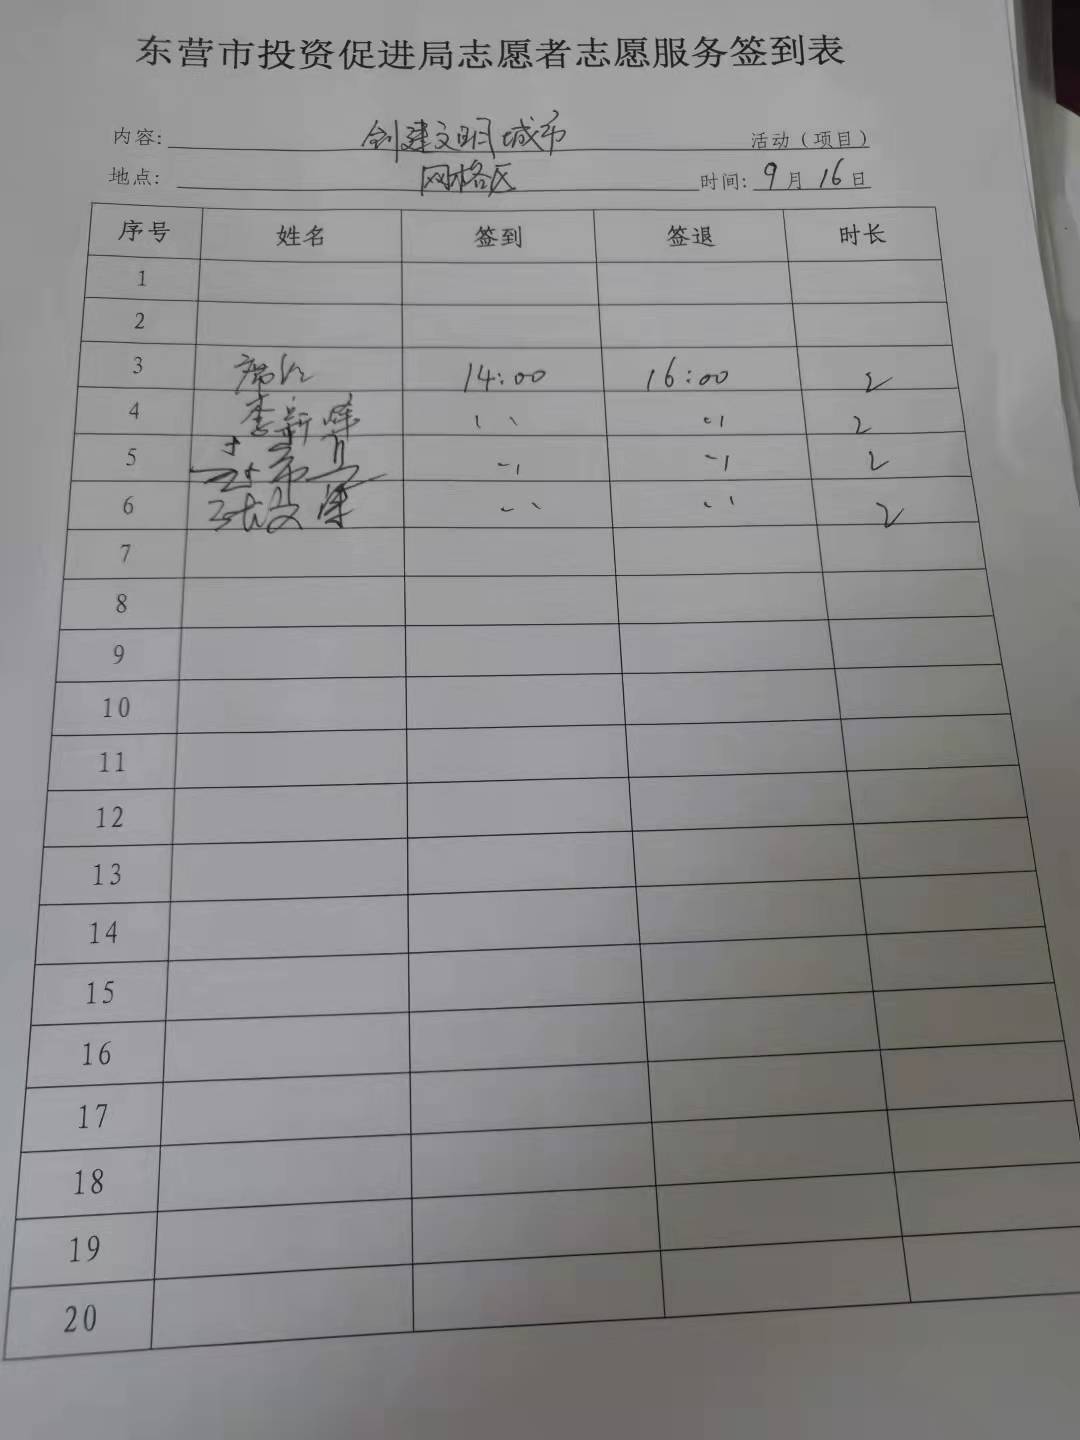 东营市投资促进局志愿者志愿服务签到表
内容: 创建文明城市 活动（项目）
地点: 网格区 时间: 9月16日
序号 姓名 签到 签退 时长
1
2
3 14:00 16:00 2
4 李新峰 〃 〃 2
5 〃 〃 2
6 张文 〃 〃 2
7
8
9
10
11
12
13
14
15
16
17
18
19
20